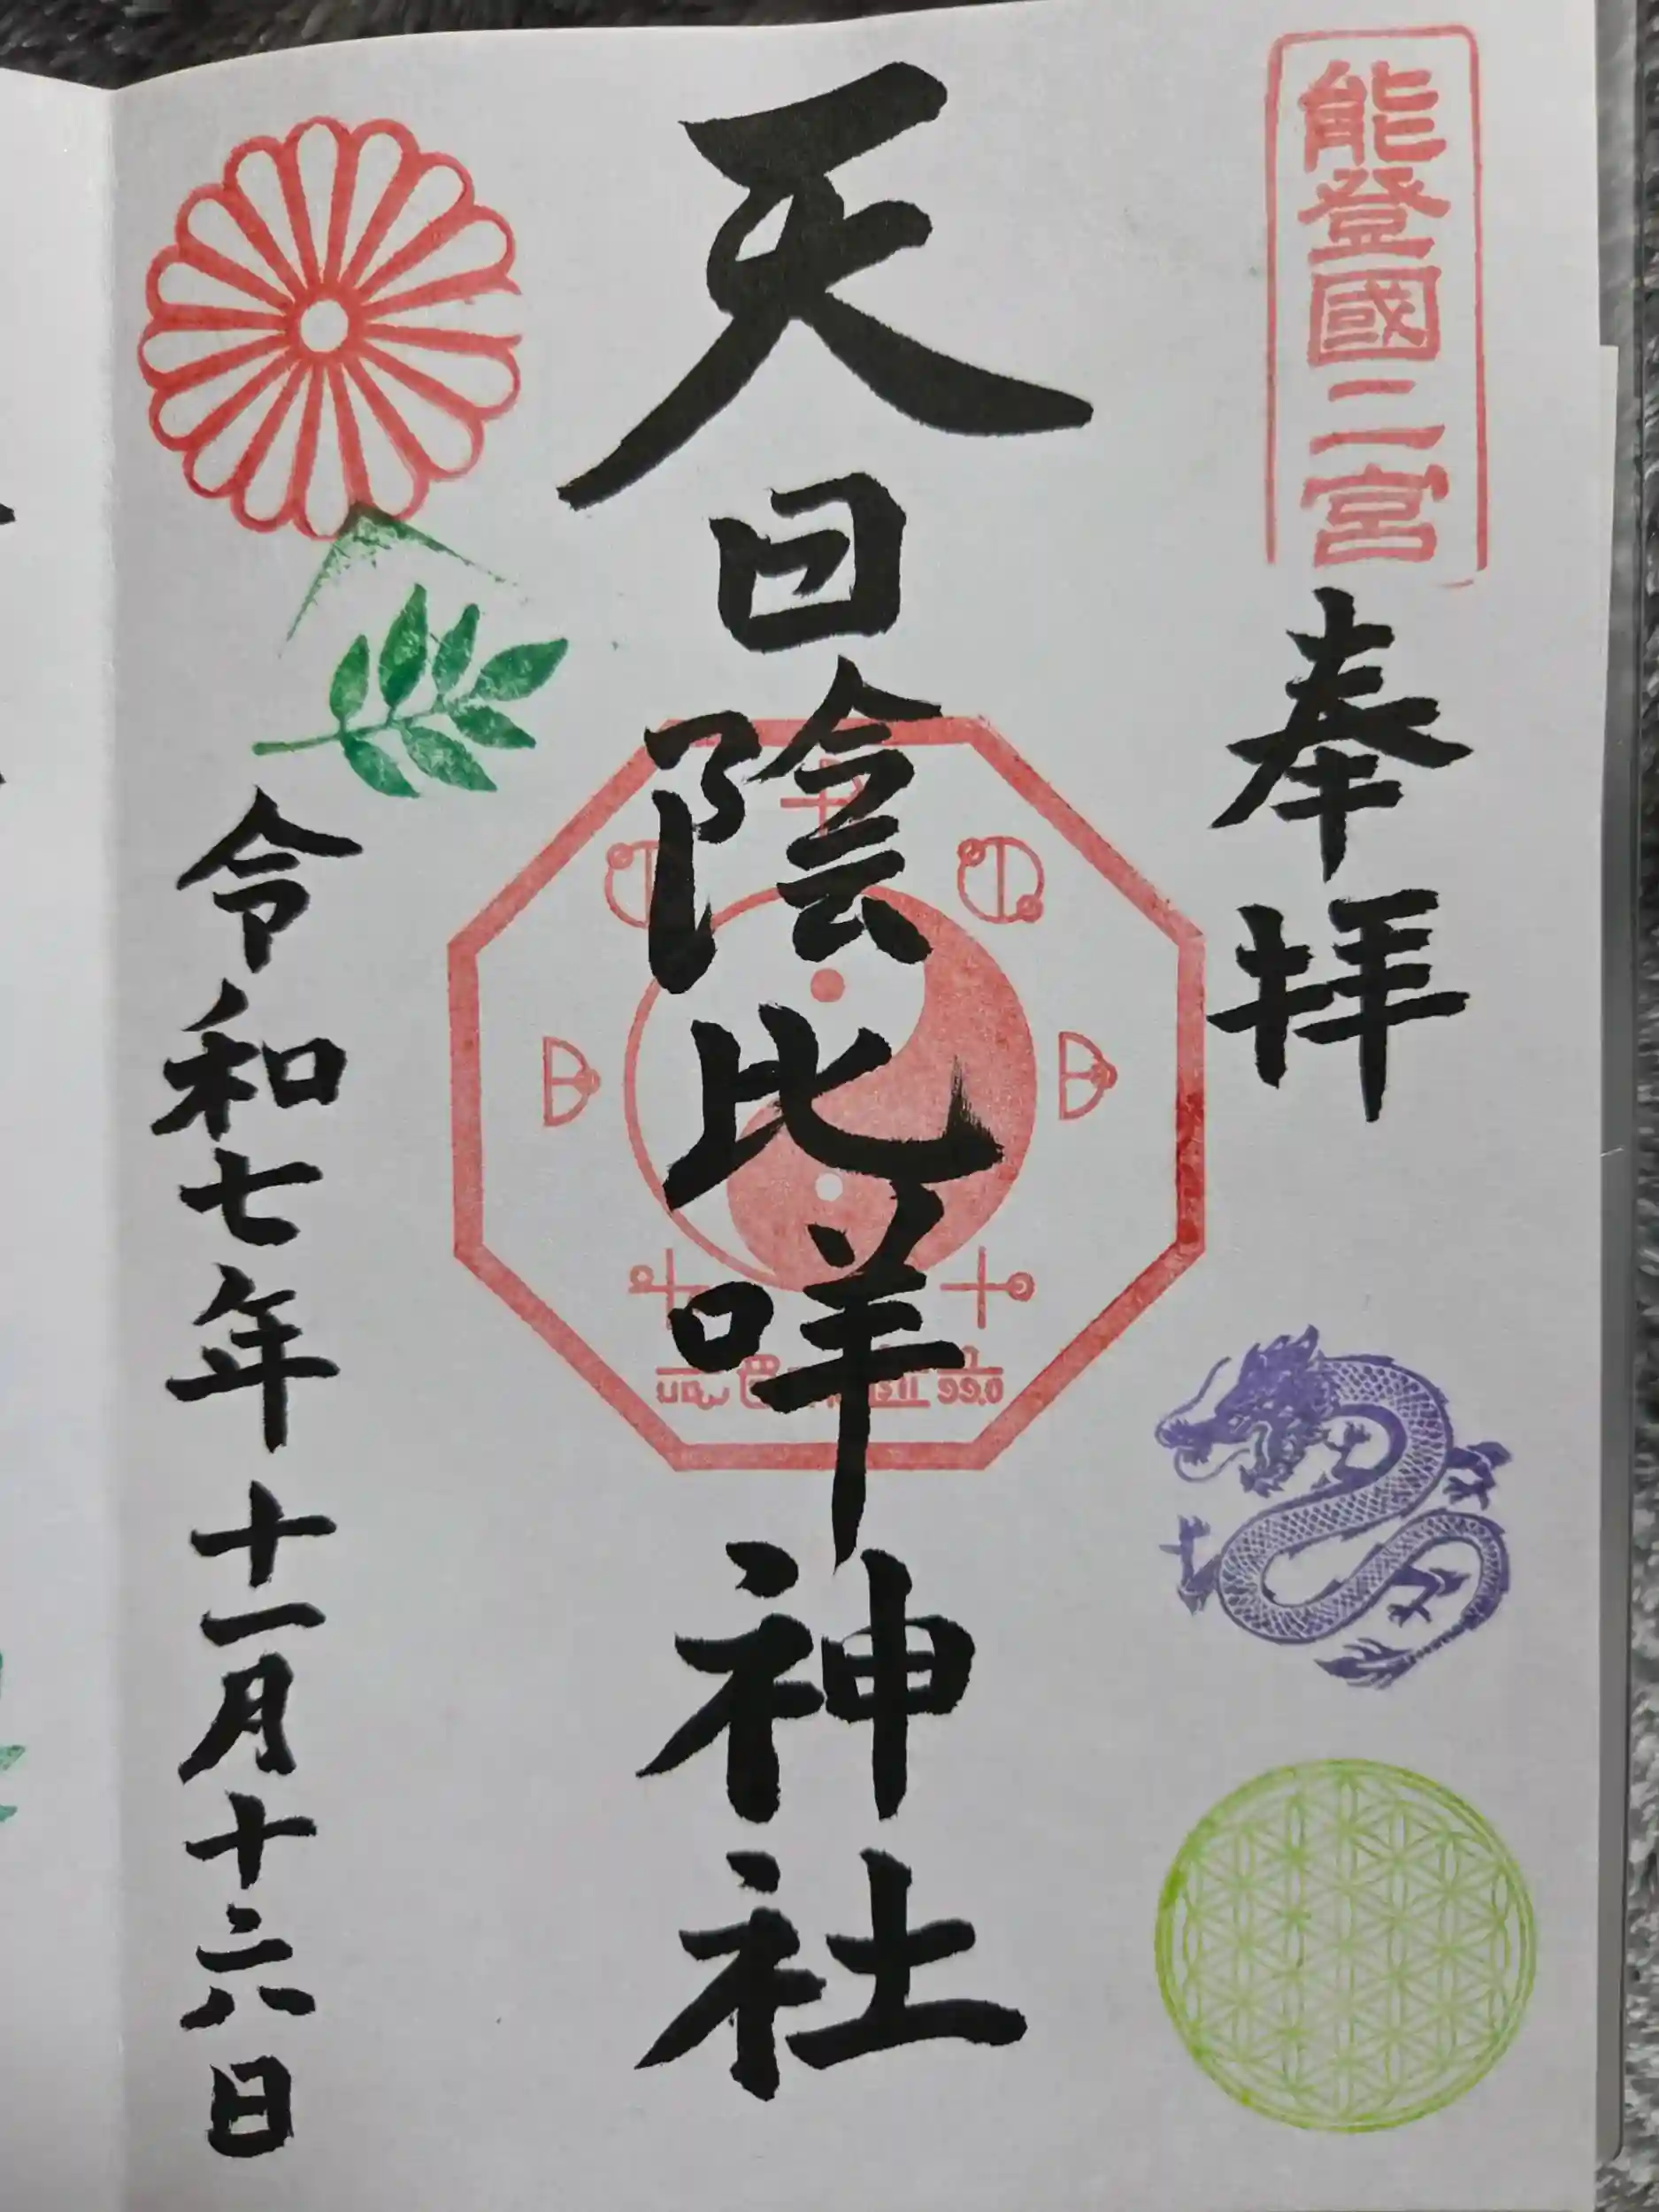 能登國二宮
奉拝
天日陰比咩神社
令和七年十一月十六日